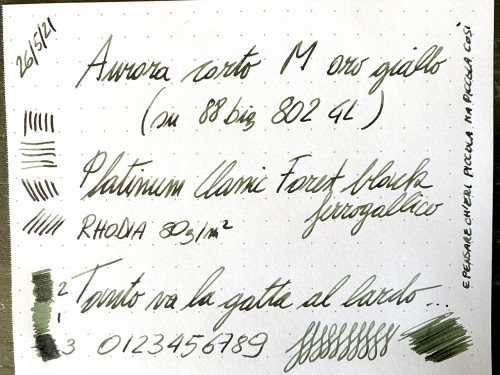 26/5/21
Aurora sarto M oro giallo
(su 88 big 802 GL)
Platinum Classic Forest black
ferrogallico
RHODIA 80g/m²
Tanto va la gatta al lardo...
2
1
3 0123456789
E PENSARE CH'ERI PICCOLA MA PICCOLA COSÌ